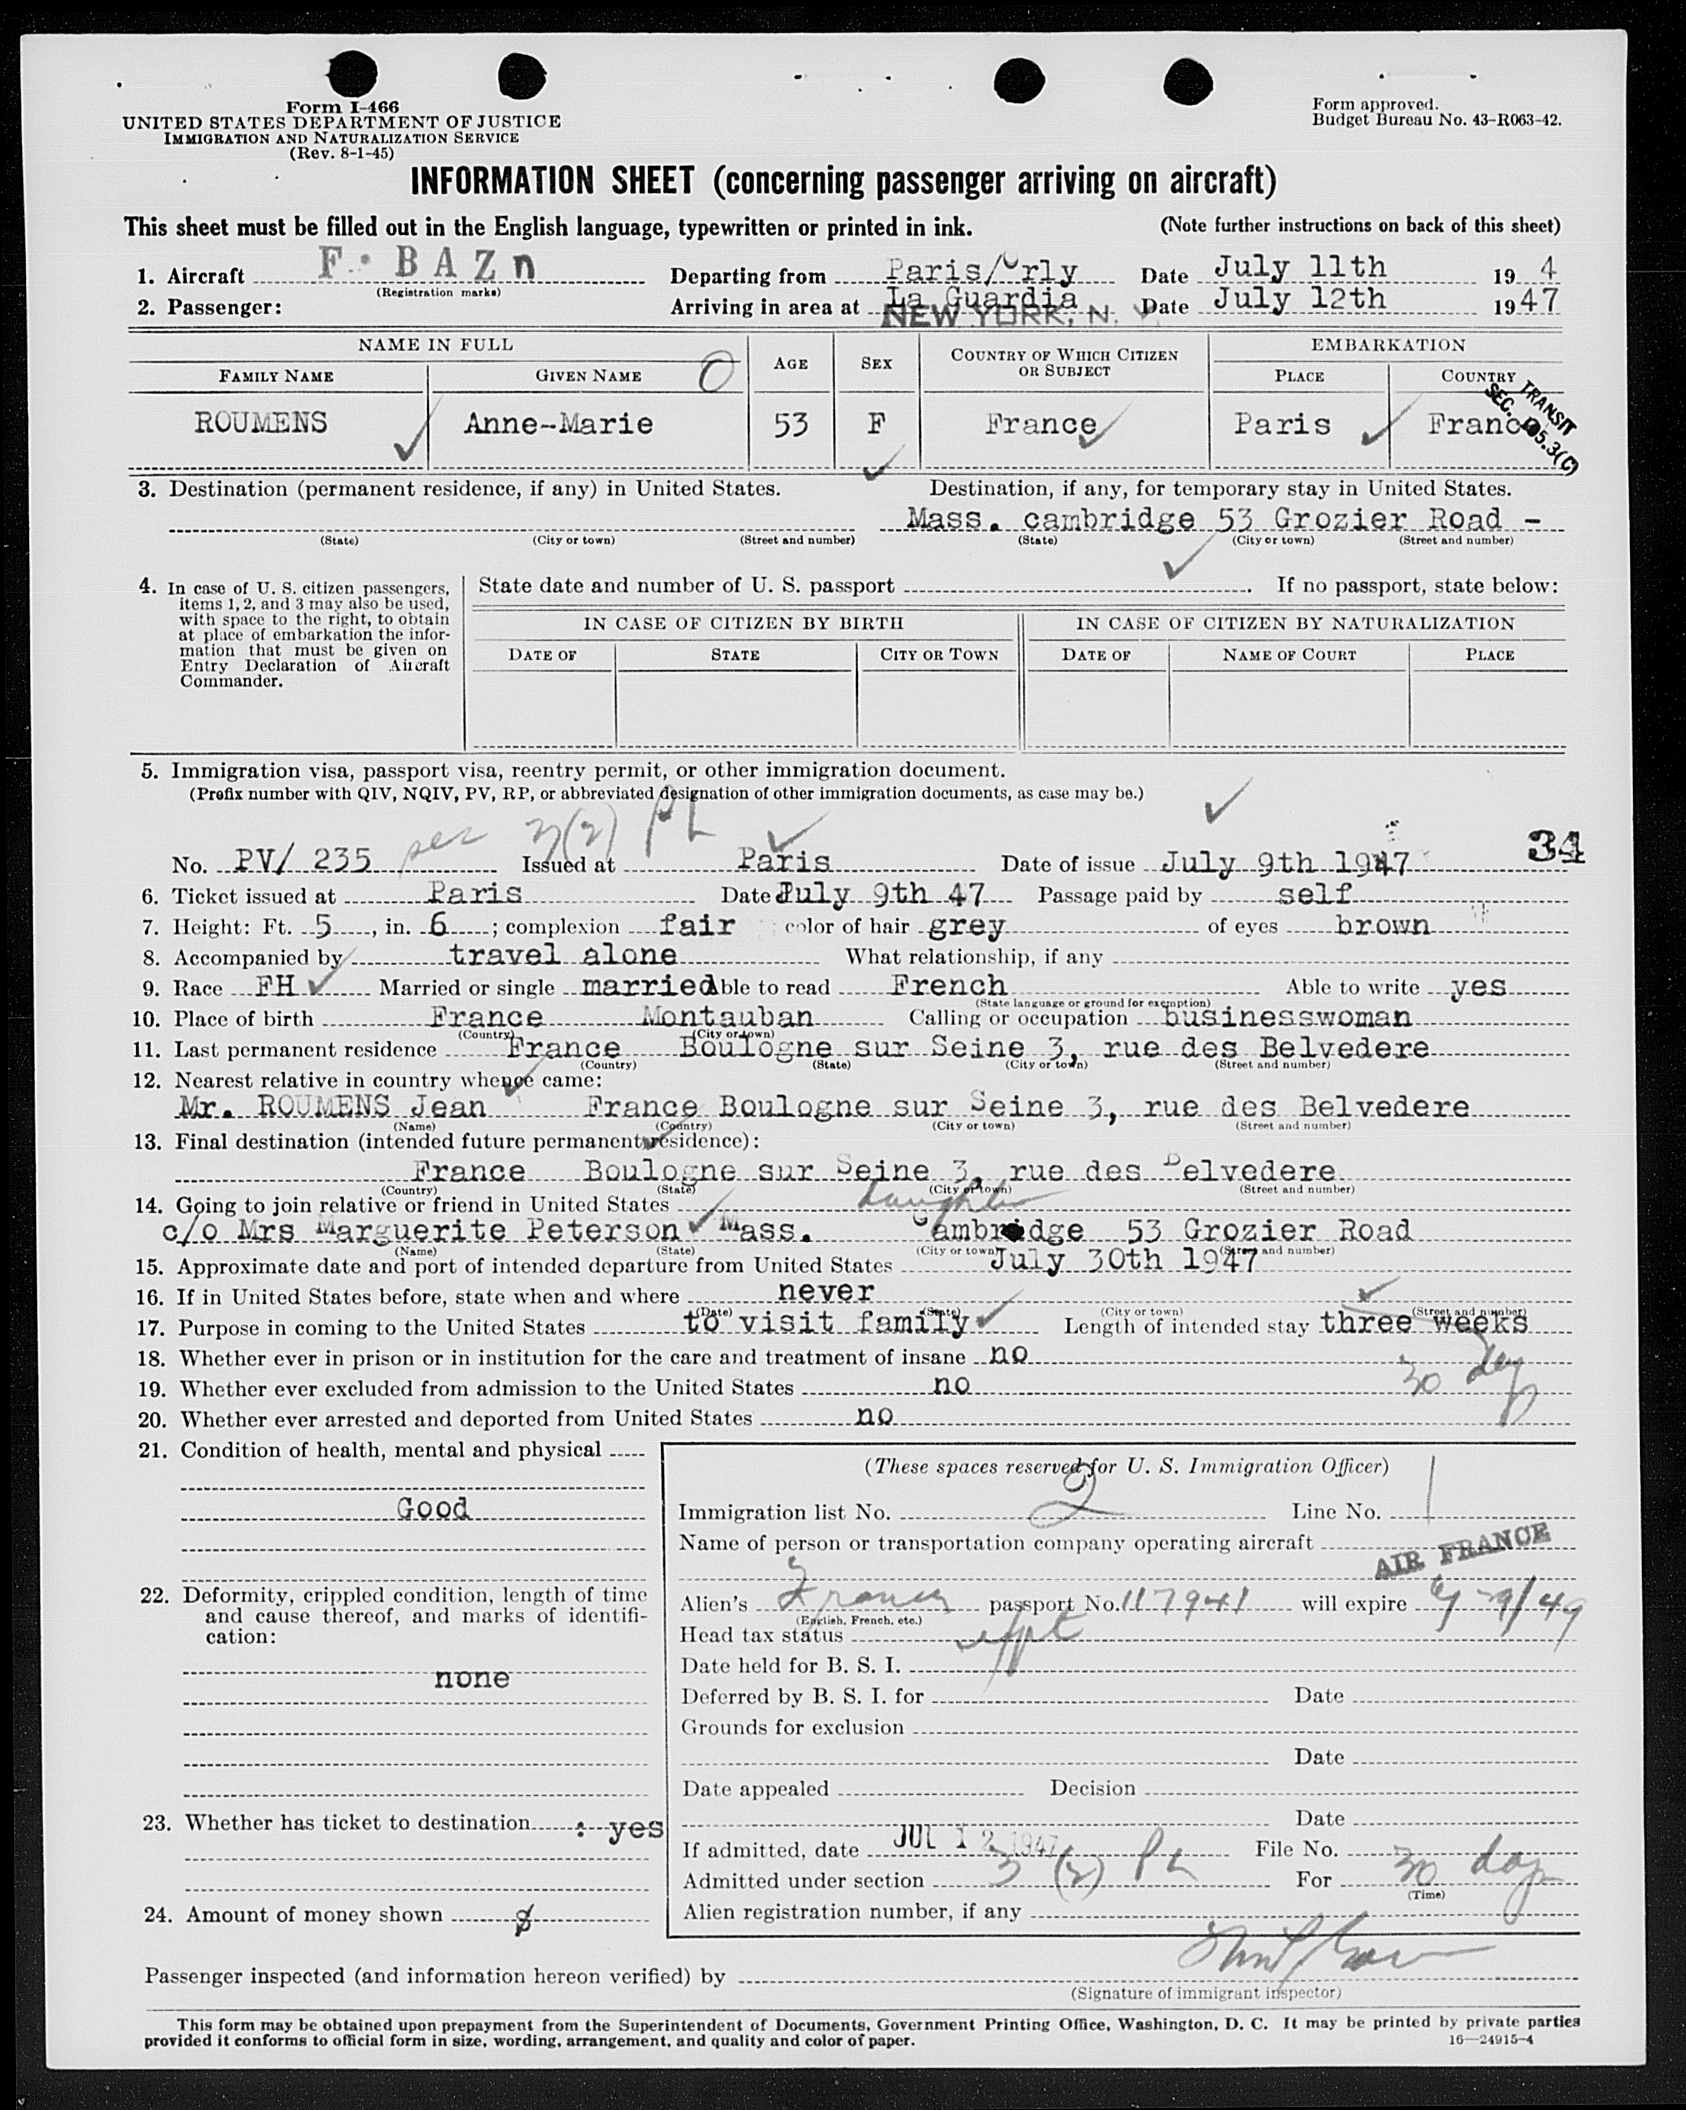 Form I-466
UNITED STATES DEPARTMENT OF JUSTICE
IMMIGRATION AND NATURALIZATION SERVICE
(Rev. 8-1-45)
Form approved.
Budget Bureau No. 43-R063-42.
INFORMATION SHEET (concerning passenger arriving on aircraft)
This sheet must be filled out in the English language, typewritten or printed in ink. (Note further instructions on back of this sheet)
1. Aircraft F. BAZn Departing from Paris/Orly Date July 11th 19 4
(Registration marks)
2. Passenger: Arriving in area at La Guardia Date July 12th 1947
NEW YORK, N.
NAME IN FULL AGE SEX COUNTRY OF WHICH CITIZEN OR SUBJECT EMBARKATION
FAMILY NAME GIVEN NAME O PLACE COUNTRY
TRANSIT
SEC. 105.3(C)
ROUMENS Anne-Marie 53 F France Paris France
3. Destination (permanent residence, if any) in United States. Destination, if any, for temporary stay in United States.
Mass. cambridge 53 Grozier Road -
(State) (City or town) (Street and number) (State) (City or town) (Street and number)
4. In case of U. S. citizen passengers, items 1, 2, and 3 may also be used, with space to the right, to obtain at place of embarkation the information that must be given on Entry Declaration of Aircraft Commander.
State date and number of U. S. passport . If no passport, state below:
IN CASE OF CITIZEN BY BIRTH IN CASE OF CITIZEN BY NATURALIZATION
DATE OF STATE CITY OR TOWN DATE OF NAME OF COURT PLACE
5. Immigration visa, passport visa, reentry permit, or other immigration document.
(Prefix number with QIV, NQIV, PV, RP, or abbreviated designation of other immigration documents, as case may be.)
sec 3(2) PL
34
No. PV/ 235 Issued at Paris Date of issue July 9th 1947
6. Ticket issued at Paris Date July 9th 47 Passage paid by self
7. Height: Ft. 5, in. 6; complexion fair color of hair grey of eyes brown
8. Accompanied by travel alone What relationship, if any
9. Race FH Married or single married Able to read French Able to write yes
(State language or ground for exemption)
10. Place of birth France Montauban Calling or occupation businesswoman
(Country) (City or town)
11. Last permanent residence France Boulogne sur Seine 3, rue des Belvedere
(Country) (State) (City or town) (Street and number)
12. Nearest relative in country whence came:
Mr. ROUMENS Jean France Boulogne sur Seine 3, rue des Belvedere
(Name) (Country) (City or town) (Street and number)
13. Final destination (intended future permanent residence):
France Boulogne sur Seine 3, rue des Belvedere
(Country) (State) (City or town) (Street and number)
14. Going to join relative or friend in United States daughter
c/o Mrs Marguerite Peterson Mass. Cambridge 53 Grozier Road
(Name) (State) (City or town) (Street and number)
15. Approximate date and port of intended departure from United States July 30th 1947
16. If in United States before, state when and where never
(Date) (State) (City or town) (Street and number)
17. Purpose in coming to the United States to visit family Length of intended stay three weeks
18. Whether ever in prison or in institution for the care and treatment of insane no
30 days
19. Whether ever excluded from admission to the United States no
20. Whether ever arrested and deported from United States no
21. Condition of health, mental and physical
Good
22. Deformity, crippled condition, length of time and cause thereof, and marks of identification:
none
23. Whether has ticket to destination : yes
24. Amount of money shown $
(These spaces reserved for U. S. Immigration Officer)
Immigration list No. 2 Line No. 1
Name of person or transportation company operating aircraft AIR FRANCE
Alien's France passport No. 117941 will expire
(English, French, etc.)
Head tax status
Date held for B. S. I.
Deferred by B. S. I. for Date
Grounds for exclusion
Date
Date appealed Decision
Date
If admitted, date JUL 12 1947 File No.
Admitted under section 3 (2) PL For 30 days
(Time)
Alien registration number, if any
Passenger inspected (and information hereon verified) by
(Signature of immigrant inspector)
This form may be obtained upon prepayment from the Superintendent of Documents, Government Printing Office, Washington, D. C. It may be printed by private parties
provided it conforms to official form in size, wording, arrangement, and quality and color of paper. 16—24915-4